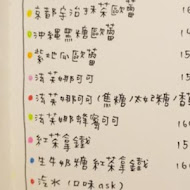 京都宇治抹茶歐蕾 16
沖繩黑糖歐蕾 14
紫地瓜歐蕾 15
法芙娜可可 15
法芙娜可可(焦糖/太妃糖/ 16
法芙娜蜂蜜可可 16
紅茶拿鐵 15
生牛奶糖紅茶拿鐵 16
汽水(口味ask)